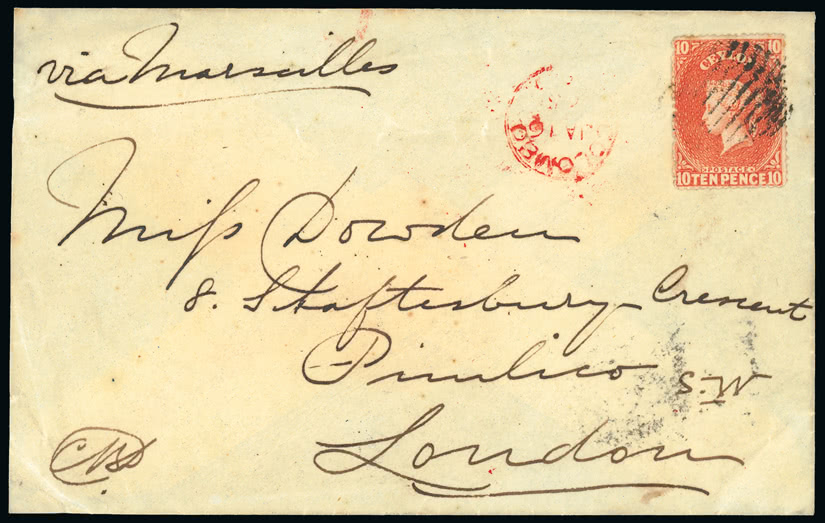 via Marseilles
10 10
CEYLON
POSTAGE
10 TEN PENCE 10
COLOMBO
JA 19
Miss Dowden
8. Shaftesbury Crescent
Pimlico S.W
London